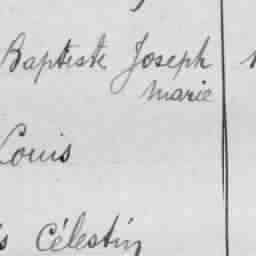 Baptiste Joseph
Marie
Louis
Célestin